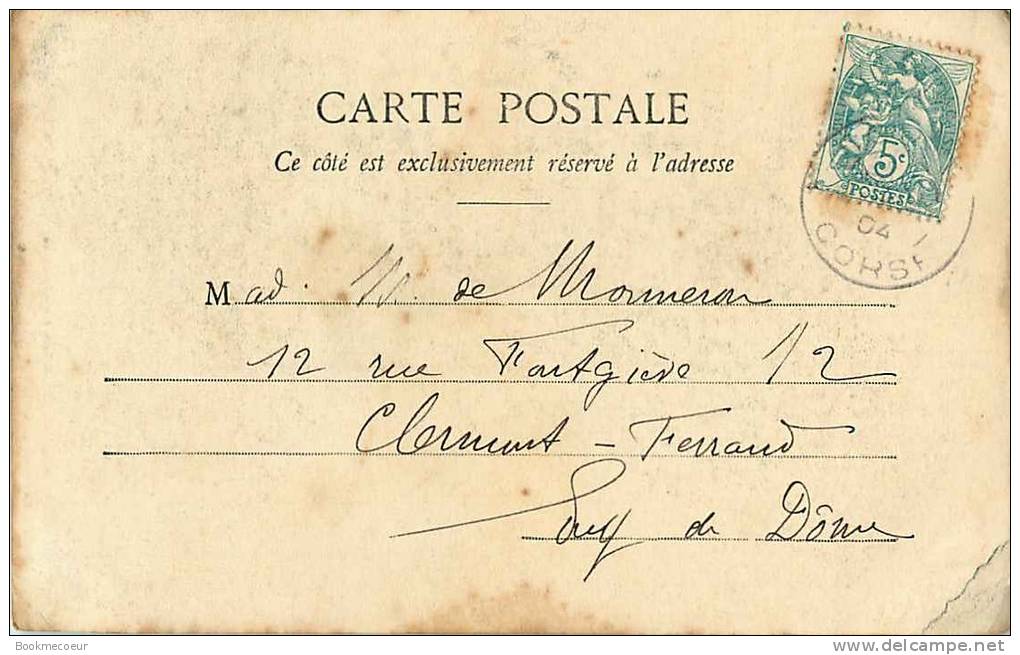 CARTE POSTALE
Ce côté est exclusivement réservé à l'adresse
5c
POSTES
04
CORSE
Mad. M. de Monneron
12 rue Fontgiève 12
Clermont-Ferrand
Puy de Dôme
Bookmecoeur
www.delcampe.net